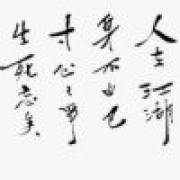 人在江湖
身不由己
寸心
生死忘矣